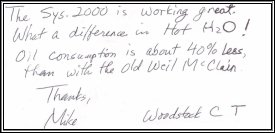 The Sys. 2000 is working great.
What a difference in Hot H₂O!
Oil consumption is about 40% less,
than with the old Weil McClain
Thanks,
Mike Woodstock C T